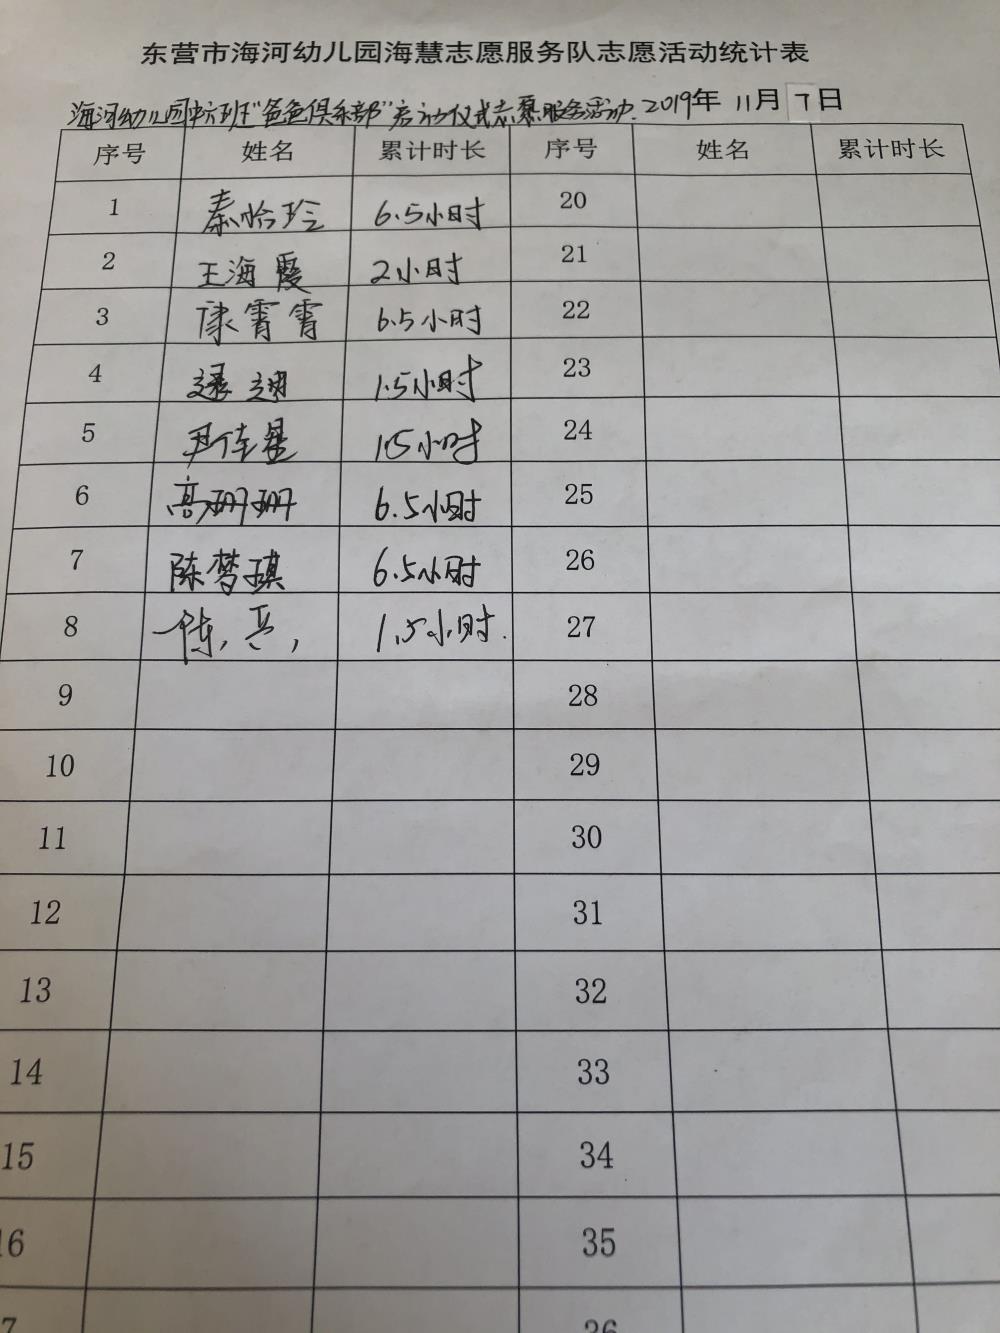 东营市海河幼儿园海慧志愿服务队志愿活动统计表
海河幼儿园中六班"爸爸俱乐部"启动仪式志愿服务活动. 2019年 11月 7日
序号 姓名 累计时长 序号 姓名 累计时长
1 秦怡玲 6.5小时 20
2 王海霞 2小时 21
3 康霄霄 6.5小时 22
4 1.5小时 23
5 尹佳星 1.5小时 24
6 高珊珊 6.5小时 25
7 陈梦琪 6.5小时 26
8 1.5小时. 27
9 28
10 29
11 30
12 31
13 32
14 33
15 34
16 35
7 36